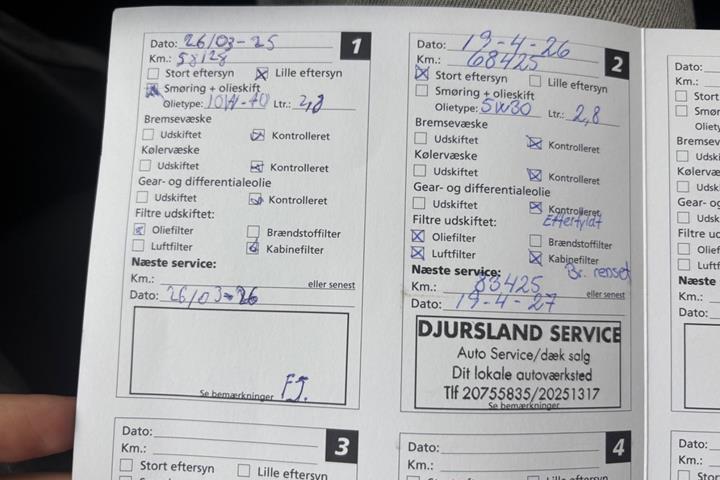 1
Dato: 26/03-25
Km.: 58128
Stort eftersyn Lille eftersyn
Smøring + olieskift
Olietype: 10W-40 Ltr.: 2,8
Bremsevæske
Udskiftet Kontrolleret
Kølervæske
Udskiftet Kontrolleret
Gear- og differentialeolie
Udskiftet Kontrolleret
Filtre udskiftet:
Oliefilter Brændstoffilter
Luftfilter Kabinefilter
Næste service:
Km.: eller senest
Dato: 26/03-26
Se bemærkninger FJ.
2
Dato: 19-4-26
Km.: 68425
Stort eftersyn Lille eftersyn
Smøring + olieskift
Olietype: 5W30 Ltr.: 2,8
Bremsevæske
Udskiftet Kontrolleret
Kølervæske
Udskiftet Kontrolleret
Gear- og differentialeolie
Udskiftet Kontrolleret
Efterfyldt
Filtre udskiftet:
Oliefilter Brændstoffilter
Luftfilter Kabinefilter
Br. renset
Næste service:
Km.: 83425 eller senest
Dato: 19-4-27
DJURSLAND SERVICE
Auto Service/dæk salg
Dit lokale autoværksted
Tlf 20755835/20251317
Se bemærkninger
Dato:
Km.:
Stort
Smør
Oliety
Bremsevæ
Udski
Kølervæ
Udsk
Gear- og
Udsk
Filtre ud
Oliefi
Luftf
Næste
Km.:
Dato:
3
Dato:
Km.:
Stort eftersyn Lille eftersyn
4
Dato:
Km.:
Stort eftersyn Lille eftersyn
Dato:
Km.: